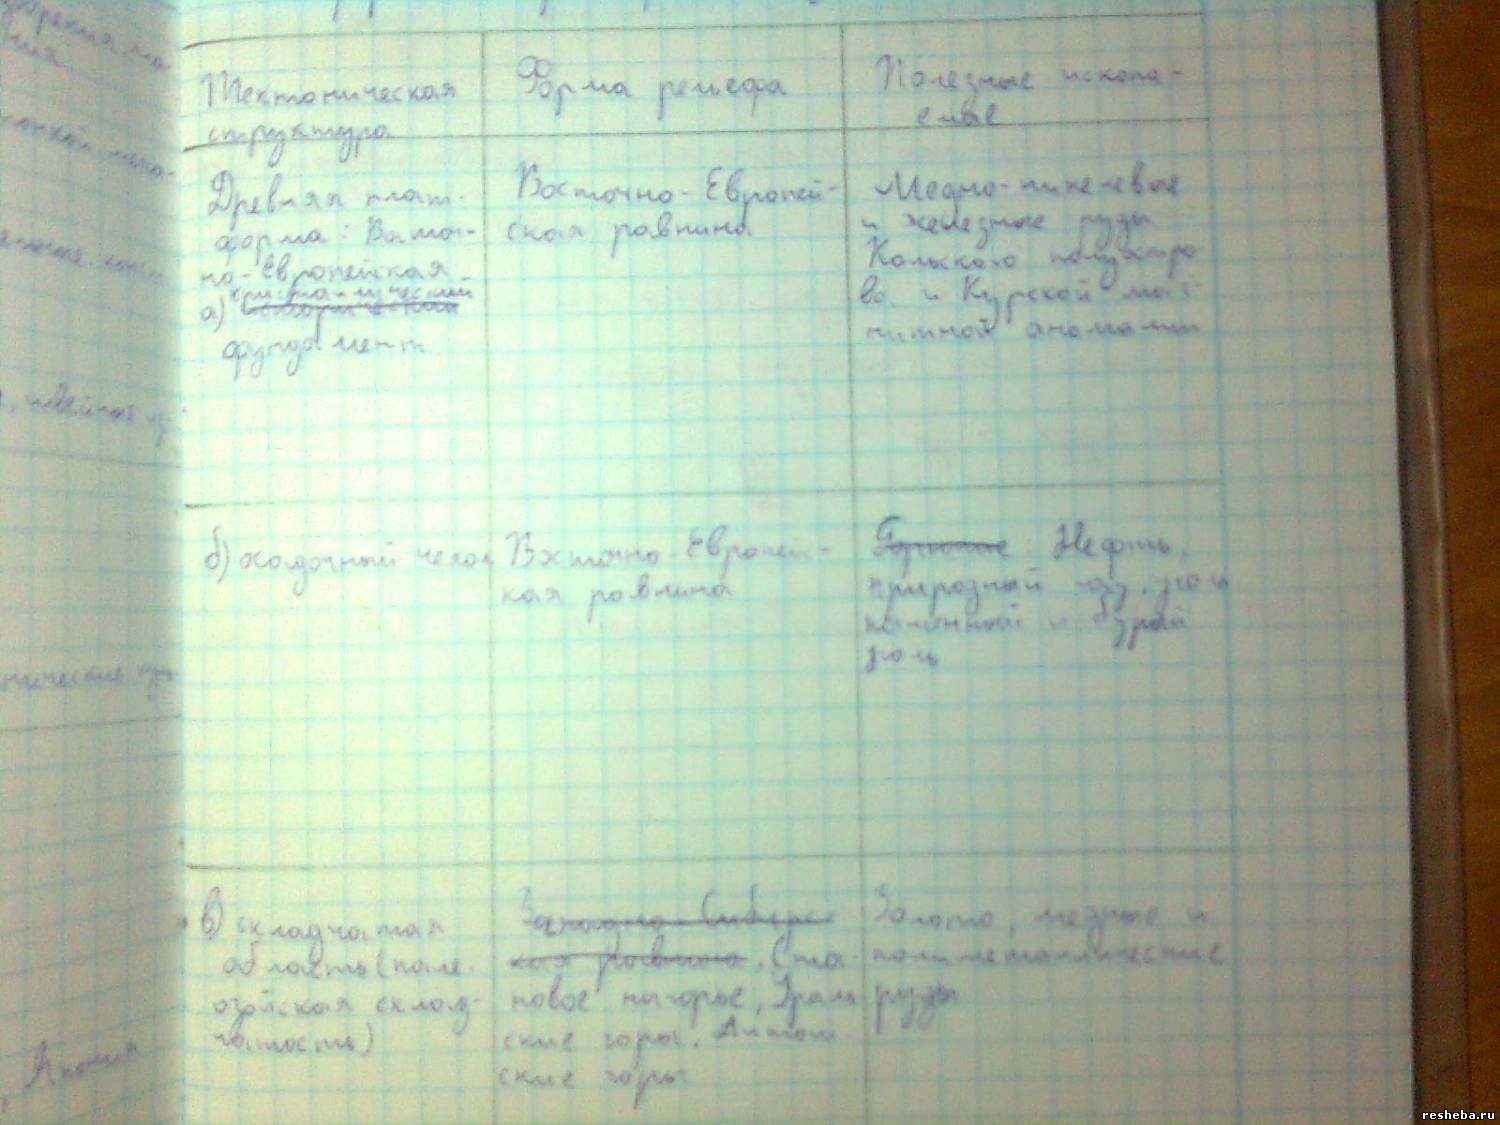 Тектоническая
структура
Форма рельефа
Полезные ископа-
емые
Древняя плат-
форма: Восточ-
но-Европейская
а) кристаллический
фундамент
Восточно-Европей-
ская равнина
Медно-никелевые
и железные руды
Кольского полуостро
ва и Курской маг-
нитной аномалии
б) осадочный чехол
Восточно-Европей-
кая равнина
Нефть,
природный газ,
каменный и бурый
уголь
в) складчатая
область (пале-
озойская склад-
чатость)
Западно-Сибирс-
кая равнина, Ста-
новое нагорье, Ураль
ские горы, Алтай
ские горы
Золото, медные и
полиметаллические
руды
Япония
resheba.ru